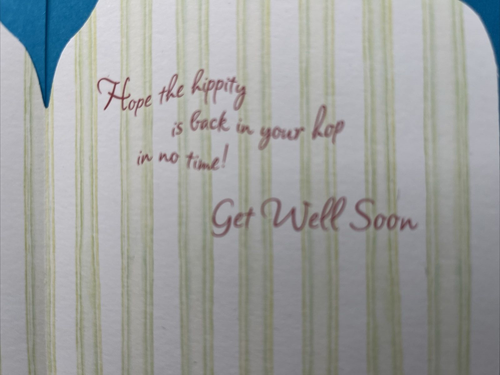 Hope the hippity
is back in your hop
in no time!
Get Well Soon